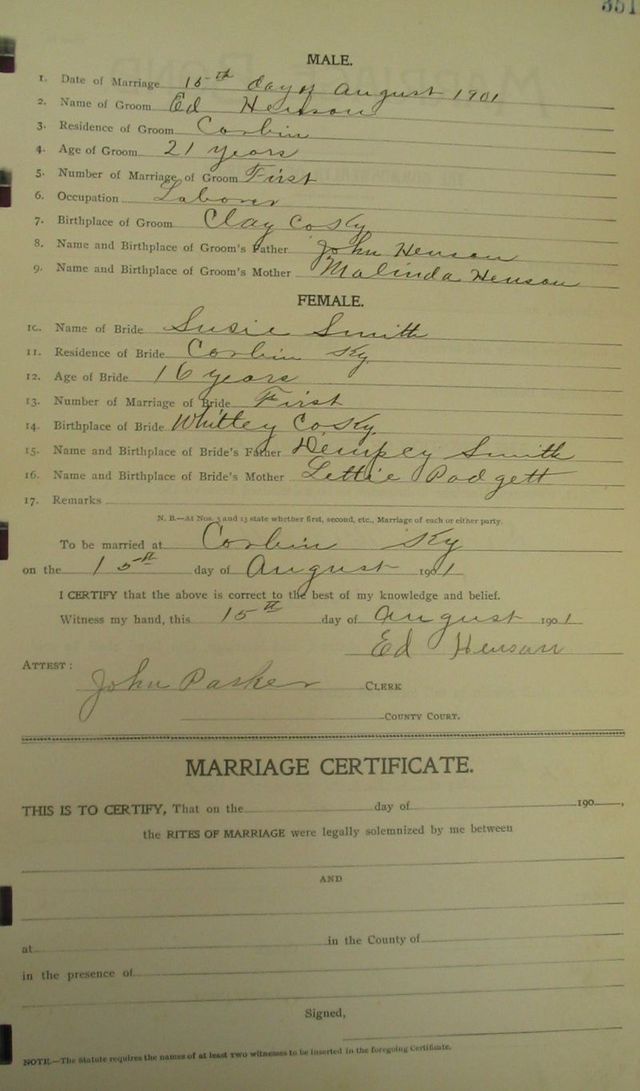 351
MALE.
1. Date of Marriage 15th day of August 1901
2. Name of Groom Ed Henson
3. Residence of Groom Corbin
4. Age of Groom 21 years
5. Number of Marriage of Groom First
6. Occupation Laborer
7. Birthplace of Groom Clay Co Ky
8. Name and Birthplace of Groom's Father John Henson
9. Name and Birthplace of Groom's Mother Malinda Henson
FEMALE.
10. Name of Bride Susie Smith
11. Residence of Bride Corbin Ky
12. Age of Bride 16 years
13. Number of Marriage of Bride First
14. Birthplace of Bride Whitley Co Ky
15. Name and Birthplace of Bride's Father Dempsey Smith
16. Name and Birthplace of Bride's Mother Lettie Padgett
17. Remarks
N. B.—At Nos. 5 and 13 state whether first, second, etc., Marriage of each or either party.
To be married at Corbin Ky
on the 15th day of August 1901
I CERTIFY that the above is correct to the best of my knowledge and belief.
Witness my hand, this 15th day of August 1901
Ed Henson
ATTEST:
John Parker CLERK
COUNTY COURT.
MARRIAGE CERTIFICATE.
THIS IS TO CERTIFY, That on the day of 190 ,
the RITES OF MARRIAGE were legally solemnized by me between
AND
at in the County of
in the presence of
Signed,
NOTE.—The Statute requires the names of at least two witnesses to be inserted in the foregoing Certificate.